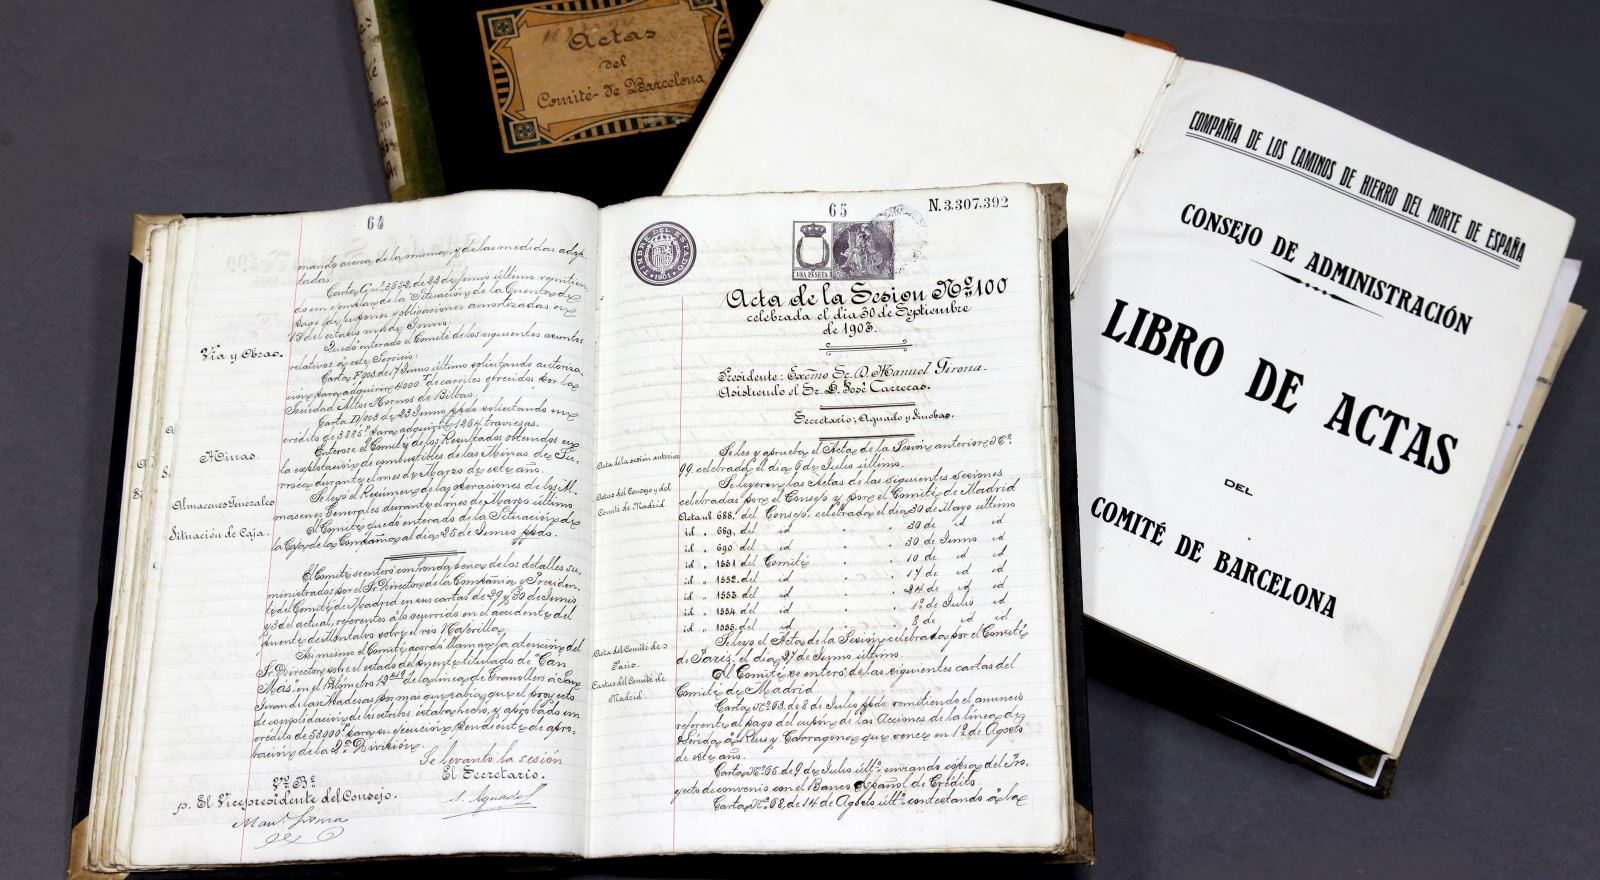 Actas
del
Comité de Barcelona
COMPAÑIA DE LOS CAMINOS DE HIERRO DEL NORTE DE ESPAÑA
CONSEJO DE ADMINISTRACIÓN
LIBRO DE ACTAS
DEL
COMITÉ DE BARCELONA
64
mando acerca de la misma, y de las medidas adop-
tadas.
Carta G. nº 3652, de 22 de Junio último remitien-
do un ejemplar de la Situación de la Cuenta de
pago de cupones y obligaciones amortizadas en
15 del citado mes de Junio.
Vía y Obras.
Quedó enterado el Comité de los siguientes asuntos
relativos a este Servicio:
Carta P/903 de 17 Junio último solicitando autoriza-
ción para adquirir 4000 T. de carriles ofrecidos por la
Sociedad Altos Hornos de Bilbao.
Carta D/903 de 23 Junio ppdo. solicitando un
crédito de 3885 para adquirir 1264 traviesas.
Minas.
Enterose el Comité de los Resultados obtenidos en
la explotación de combustibles de las Minas de
durante el mes de Marzo de este año.
Almacenes Generales
Se leyó el Resumen de las operaciones de los Al-
macenes Generales durante el mes de Marzo último
Situación de Caja.
El Comité quedó enterado de la Situación de
la Caja de la Compañía al día 25 de Junio ppdo.
El Comité se enteró con honda pena de los detalles su-
ministrados por el Sr. Director de la Compañía y Presiden-
te del Comité de Madrid en sus cartas de 29 y 30 de Junio
y 3 del actual, referentes a lo ocurrido en el accidente del
puente de Montalvo sobre el río Najerilla.
Asimismo el Comité acordó llamar la atención del
Sr. Director sobre el estado del puente titulado de "Can
Mas", en el kilómetro de la línea de Granollers á San
Juan de las Abadesas por más que sabía que el proyecto
de consolidación de los estribos estaba hecho, y aprobado un
crédito de 53000 para su ejecución, pendiente de apro-
bación de la 2ª División.
Se levantó la sesión
El Secretario.
S. Aguado
Vº Bº
p. El Vicepresidente del Consejo.
Man. Girona
65
N. 3.307.392
TIMBRE DEL ESTADO
1901
UNA PESETA
Acta de la Sesion Nº 100
celebrada el dia 30 de Septiembre
de 1903.
Presidente: Excmo Sr. D. Manuel Girona.
Asistiendo el Sr. D. José Carreras.
Secretario: Aguado y Jinobas.
Acta de la sesión anterior
Se lee y aprueba el Acta de la Sesión anterior, Nº
99, celebrada el día 6 de Julio último.
Actas del Consejo y del
Comité de Madrid
Se leyeron las Actas de las siguientes sesiones
celebradas por el Consejo y por el Comité de Madrid
Acta nº 688, del Consejo, celebrada el día 30 de Mayo último
id " 689, del id " " 30 de id id
id " 690 del id " " 30 de Junio id
id " 1551 del Comité " " 10 de id id
id " 1552. del id " " 17 de id id
id " 1553. del id " " 24 de id id
id " 1554 del id " " 1º de Julio id
id " 1555. del id " " 8 de id id
Acta del Comité de
Paris.
Se leyó el Acta de la Sesión celebrada por el Comité
de París, el día 27 de Junio último.
Cartas del Comité de
Madrid.
El Comité se enteró de las siguientes cartas del
Comité de Madrid
Carta Nº 63, de 8 de Julio ppdo. remitiendo el anuncio
referente al pago del cupón de las Acciones de la línea de
Lérida a Reus y Tarragona que vence en 1º de Agosto
de este año.
Carta Nº 65 de 9 de Julio últº. enviando copia del Pro-
yecto de convenio con el Banco Español de Crédito.
Carta Nº 68, de 14 de Agosto últº. contestando á la